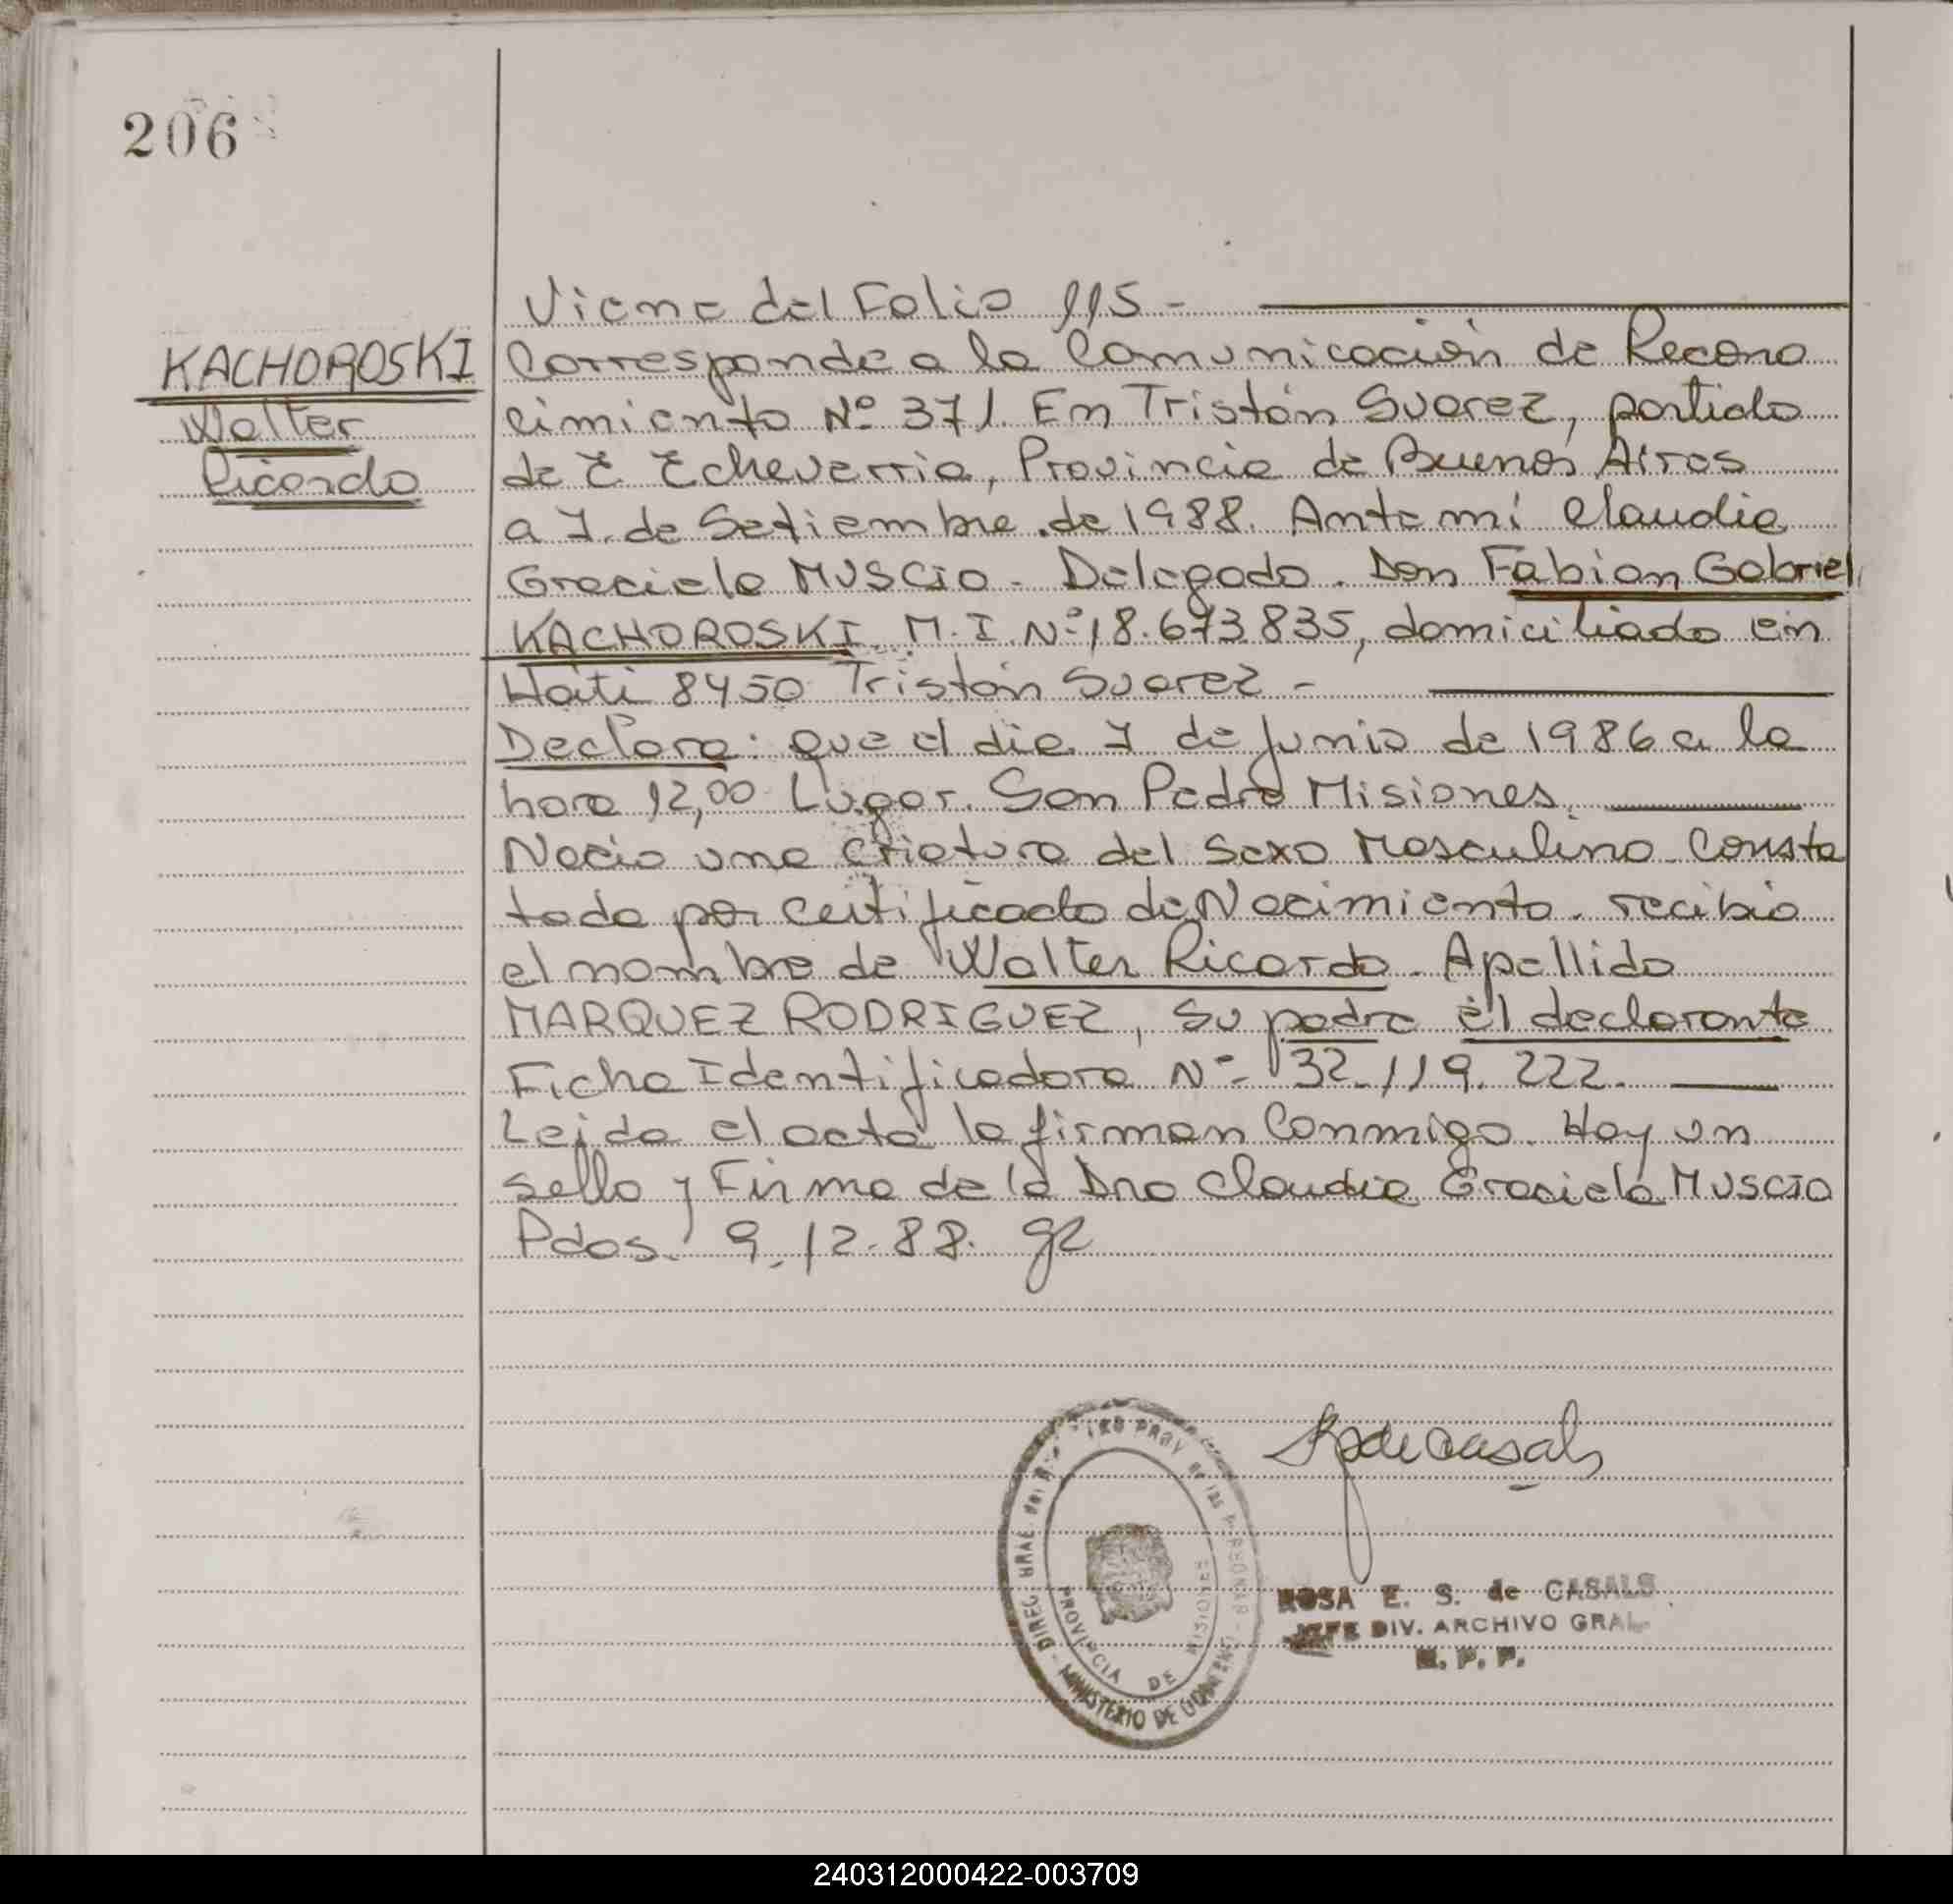 206
Viene del Folio 115 -
KACHOROSKI
Walter
Ricardo
Corresponde a la Comunicación de Recono
cimiento Nº 371. En Tristán Suarez, partido
de E. Echeverria, Provincia de Buenos Aires
a 7 de Setiembre de 1988. Ante mí Claudia
Graciela MUSCIO - Delegado. Don Fabian Gabriel
KACHOROSKI M.I. Nº 18.673835, domiciliado en
Haiti 8450 Tristán Suarez -
Declara: que el dia 7 de Junio de 1986 a la
hora 12,00 Lugar. San Pedro Misiones.
Nacio una criatura del sexo Masculino Consta
tado por certificado de Nacimiento. recibio
el nombre de Walter Ricardo. Apellido
MARQUEZ RODRIGUEZ, su padre el declarante
Ficha Identificadora Nº 32.119.222.
Leida el acta la firman Conmigo. Hay un
sello y Firma de la Dra Claudia Graciela MUSCIO
Pdas. 9.12.88.
PROV. de las PERSONAS
PROVINCIA DE MISIONES
MINISTERIO DE GOBIERNO
ROSA E. S. de CASALS
JEFE DIV. ARCHIVO GRAL.
R. P. P.
240312000422-003709